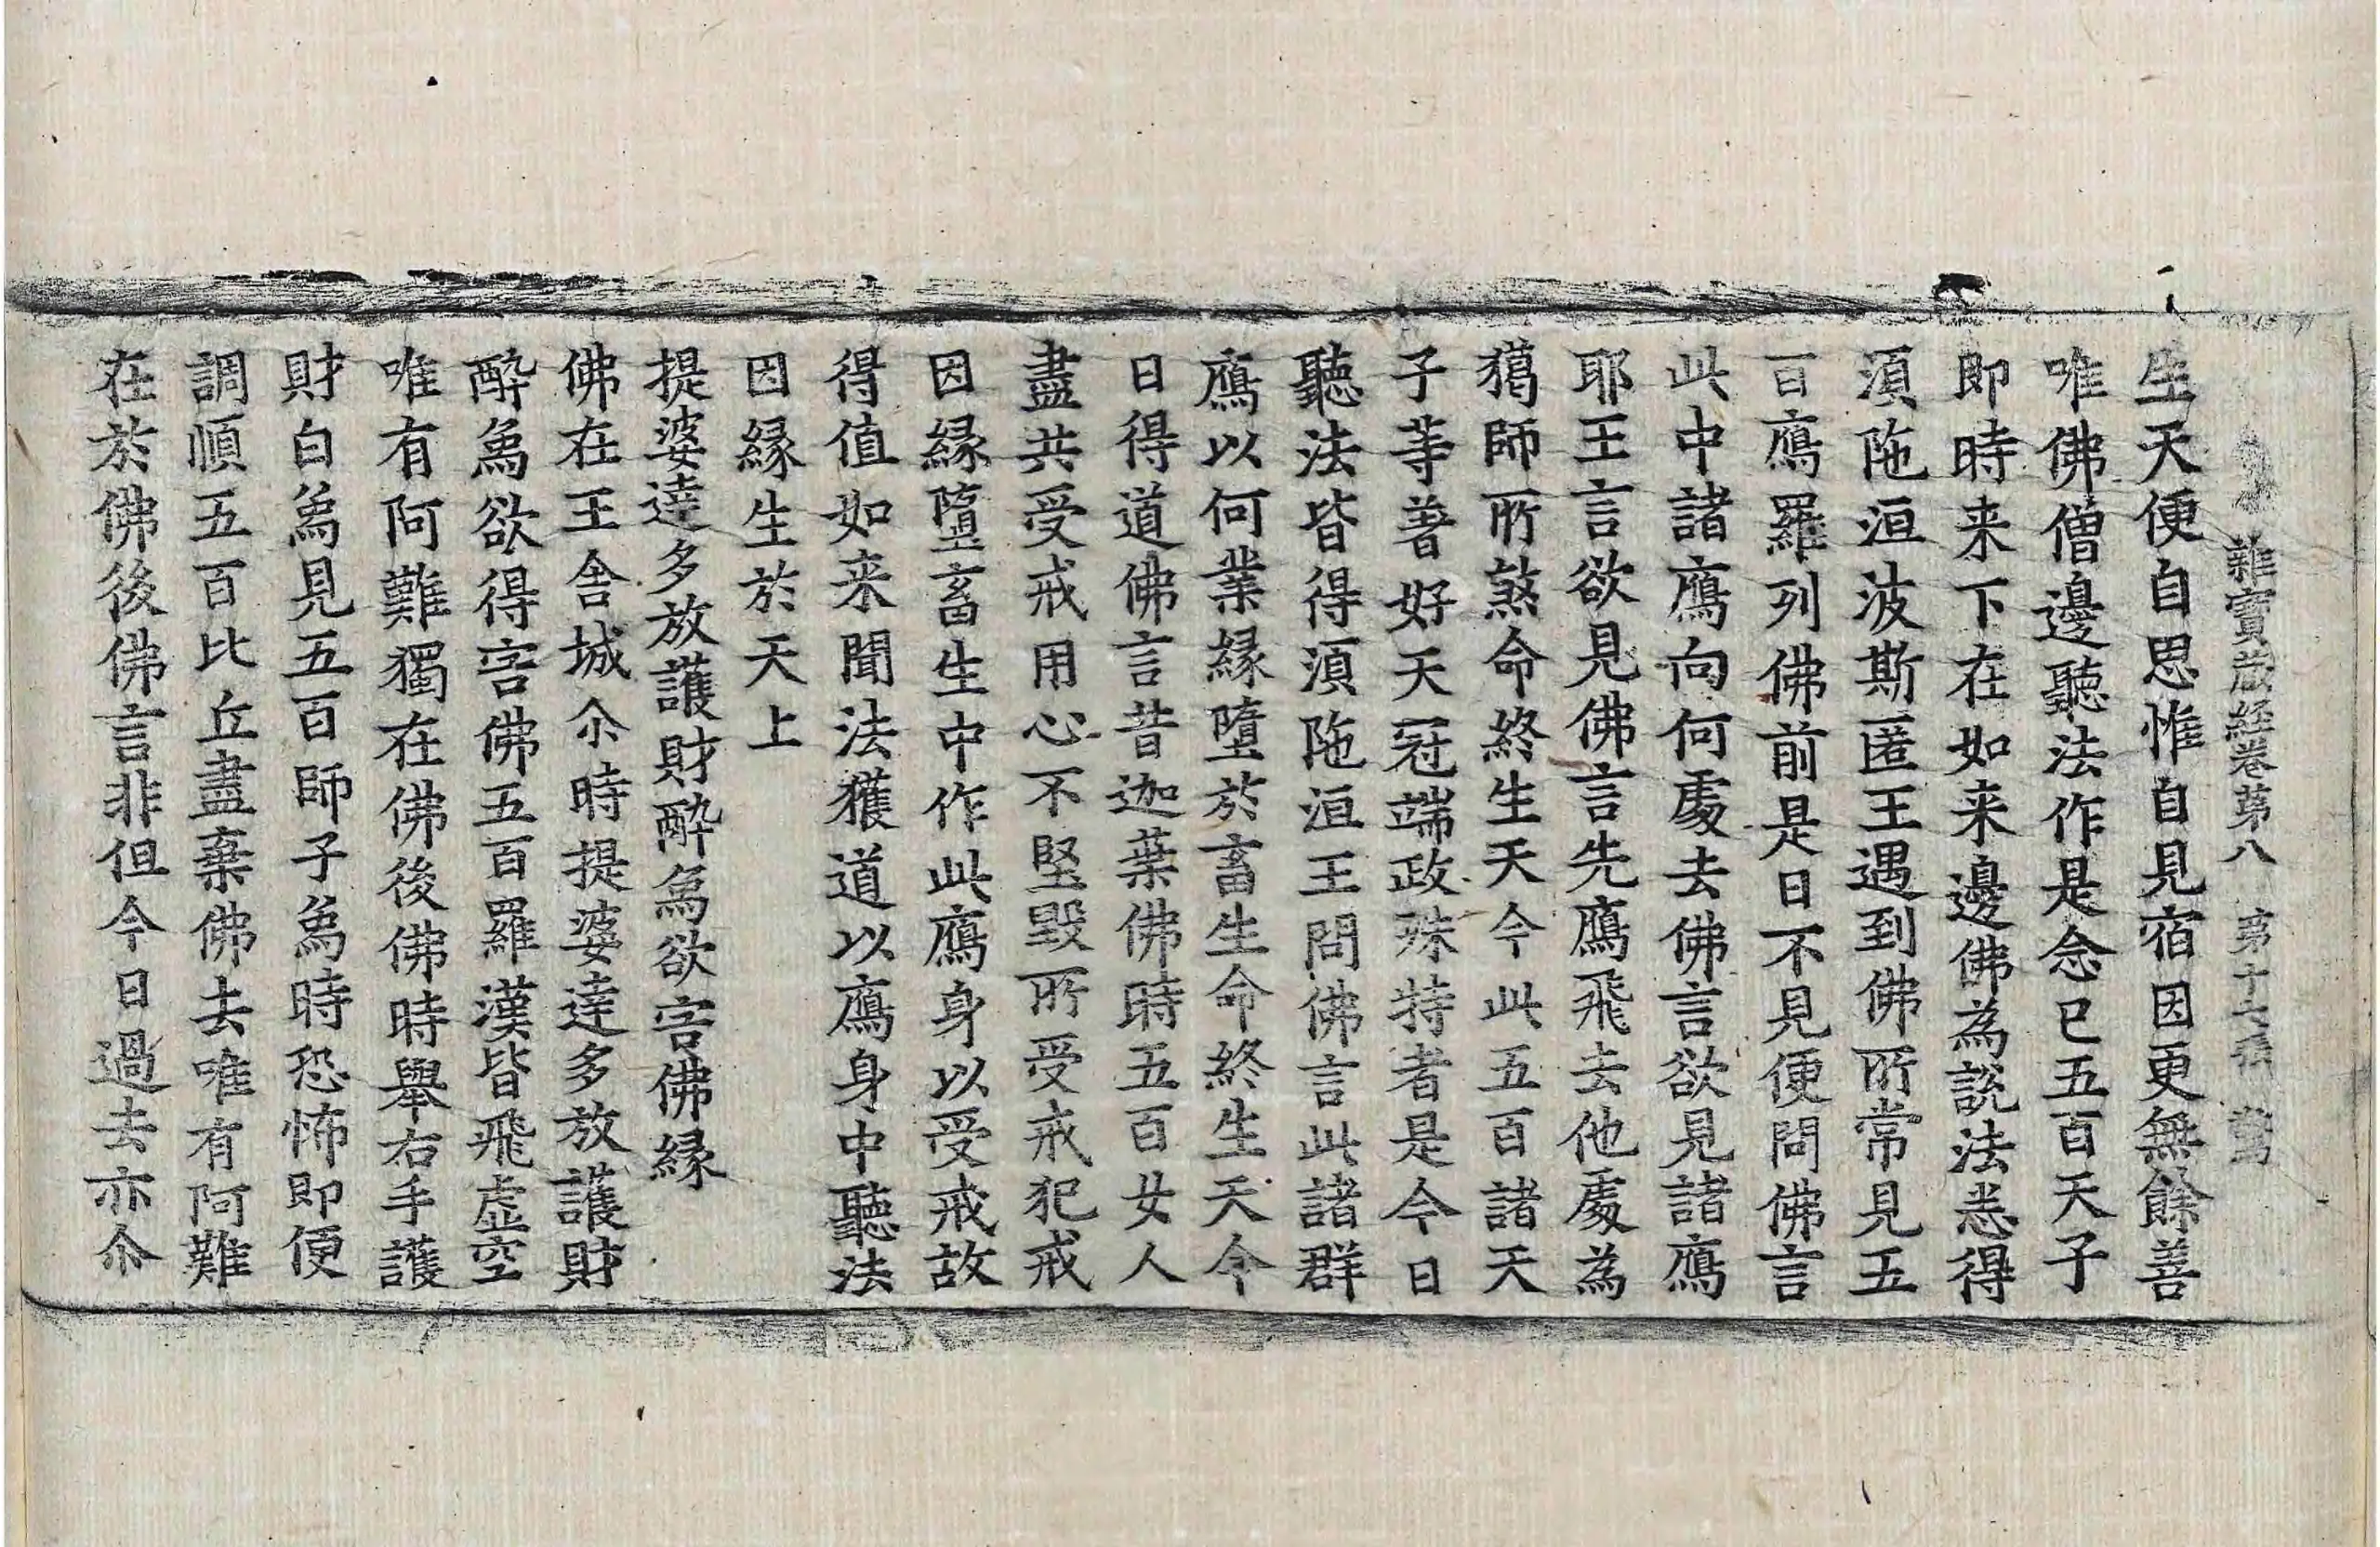 雜寶蔵経卷苐八 苐十七張 驚
生天便自思惟自見宿因更無餘善
唯佛僧邊聽法作是念已五百天子
即時来下在如来邊佛為說法悉得
湏陁洹波斯匿王遇到佛所常見五
百鴈羅列佛前是日不見便問佛言
此中諸鴈向何處去佛言欲見諸鴈
耶王言欲見佛言先鴈飛去他處為
獦師所煞命終生天今此五百諸天
子等著好天冠端政殊特者是今日
聽法皆得湏陁洹王問佛言此諸群
鴈以何業緣墮於畜生命終生天今
日得道佛言昔迦葉佛時五百女人
盡共受戒用心不堅毀所受戒犯戒
因緣墮畜生中作此鴈身以受戒故
得值如来聞法獲道以鴈身中聽法
因緣生於天上
提婆達多放護財醉象欲害佛緣
佛在王舍城尒時提婆達多放護財
醉象欲得害佛五百羅漢皆飛虛空
唯有阿難獨在佛後佛時舉右手護
財白象見五百師子象時恐怖即便
調順五百比丘盡棄佛去唯有阿難
在於佛後佛言非但今日過去亦尒